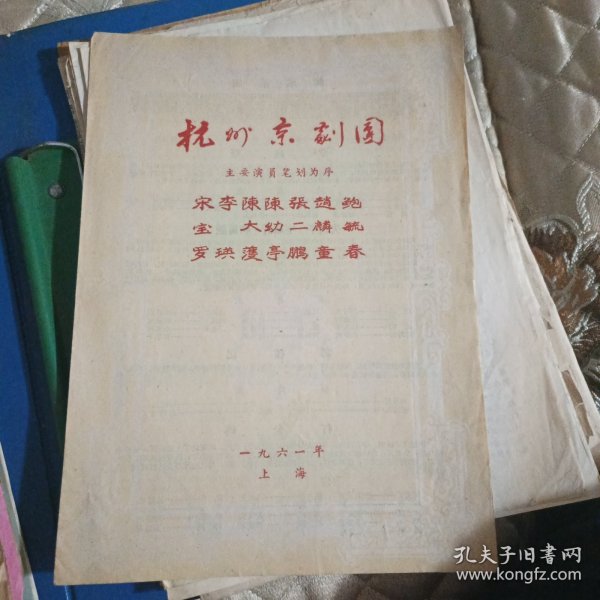 杭州京剧团
主要演员笔划为序
宋李陳陳張趙鮑
宝　大幼二麟毓
罗瑛濩亭鹏童春
一九六一年
上海
孔夫子旧书网
www.kongfz.com